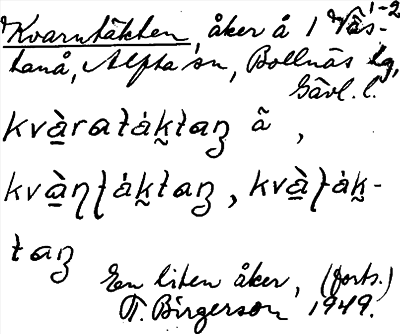 Kvarntäkten, åker å 1 Väs- 1-2
tanå, Alfta sn, Bollnäs tg,
Gävl. l.
kvàratáktaꞑ ã ,
kvàɳʈáktaꞑ, kvàʈák-
taꞑ
En liten åker, (forts.)
T. Birgerson 1949.